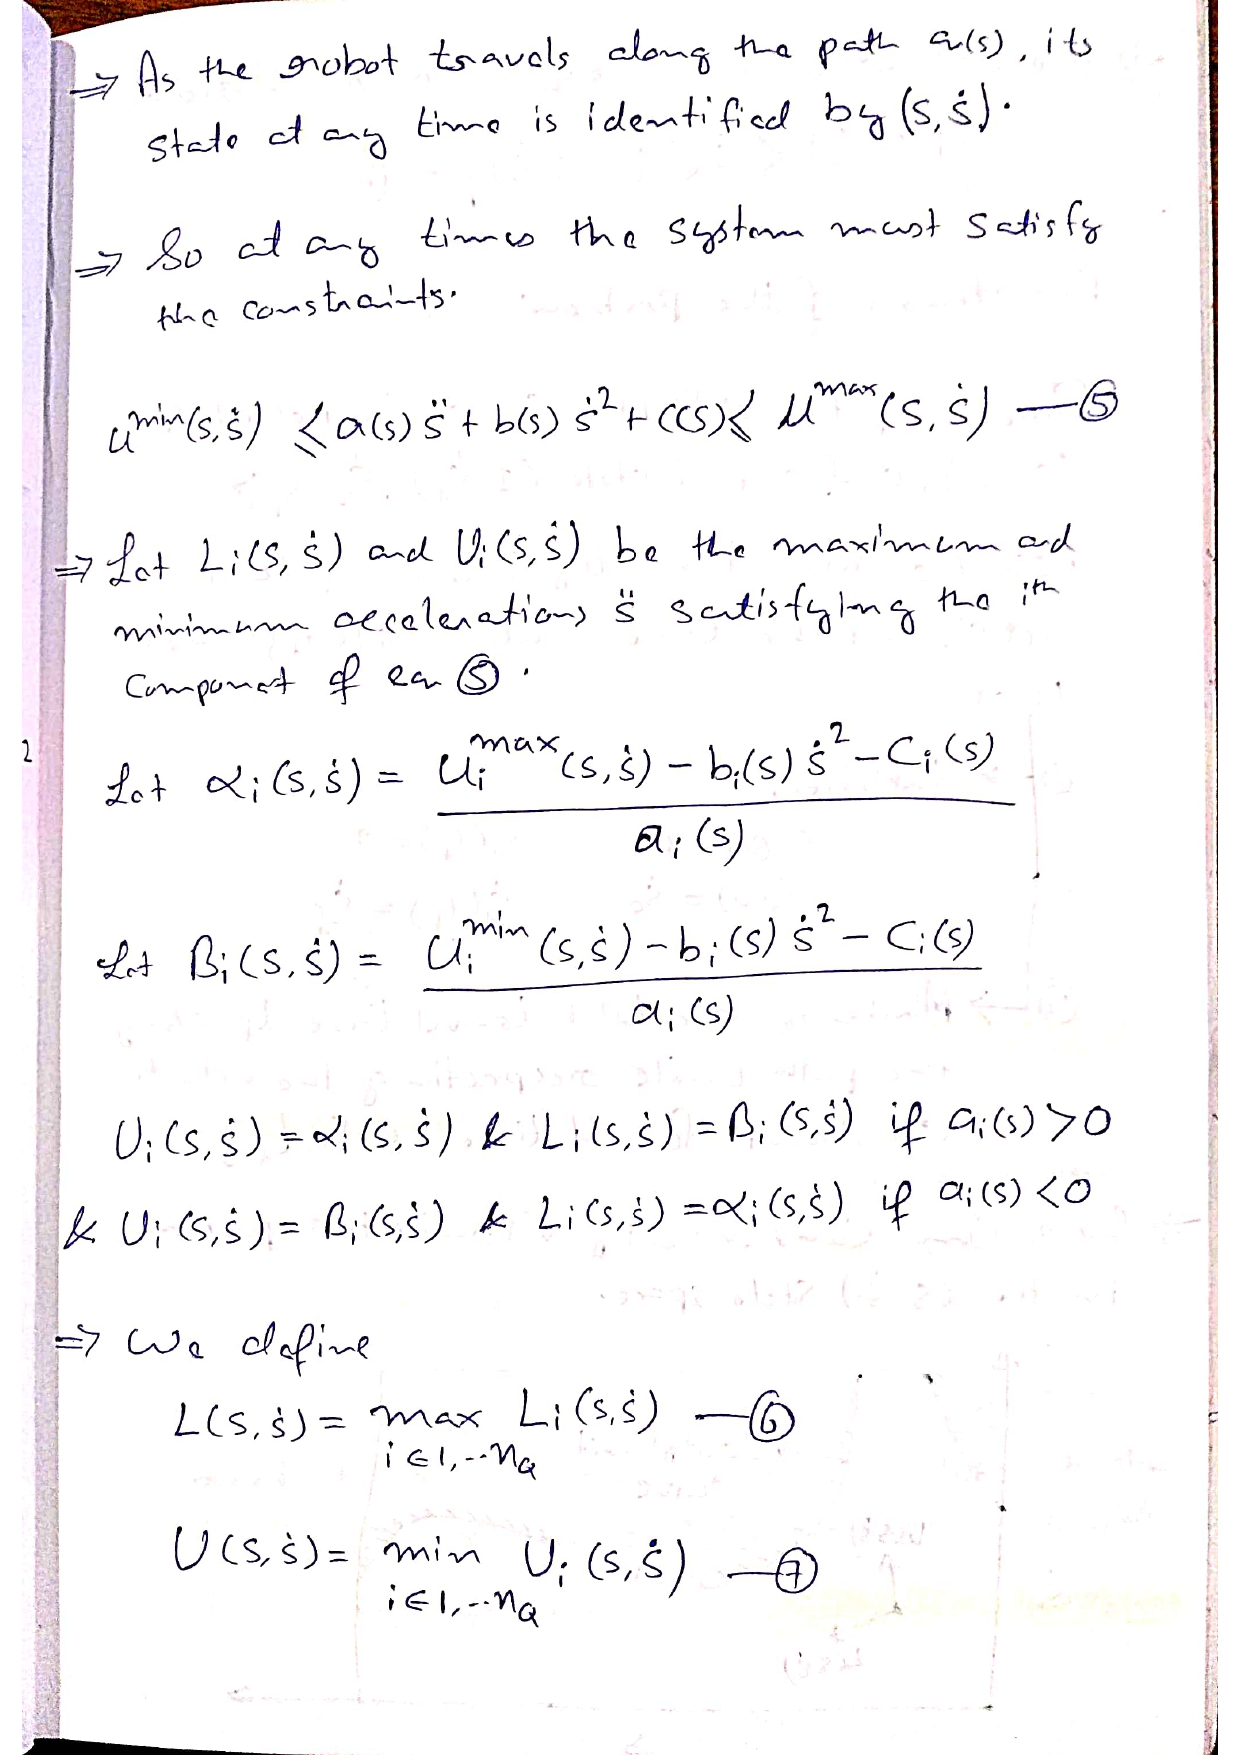 ⇒ As the robot travels along the path q(s), its
state at any time is identified by (s, ṡ).
⇒ So at any times the system must satisfy
the constraints.
u^min(s, ṡ) ≤ a(s) s̈ + b(s) ṡ² + c(s) ≤ u^max(s, ṡ) — ⑤
⇒ Let Li(s, ṡ) and Ui(s, ṡ) be the maximum and
minimum accelerations s̈ satisfying the ith
component of eq ⑤.
2
Let αi(s, ṡ) = ui^max(s, ṡ) − bi(s) ṡ² − Ci(s)
ai(s)
Let βi(s, ṡ) = ui^min(s, ṡ) − bi(s) ṡ² − Ci(s)
ai(s)
Ui(s, ṡ) = αi(s, ṡ) & Li(s, ṡ) = βi(s, ṡ) if ai(s) > 0
& Ui(s, ṡ) = βi(s, ṡ) & Li(s, ṡ) = αi(s, ṡ) if ai(s) < 0
⇒ We define
L(s, ṡ) = max Li(s, ṡ) — ⑥
i ∈ 1, -- nQ
U(s, ṡ) = min Ui(s, ṡ) — ⑦
i ∈ 1, -- nQ